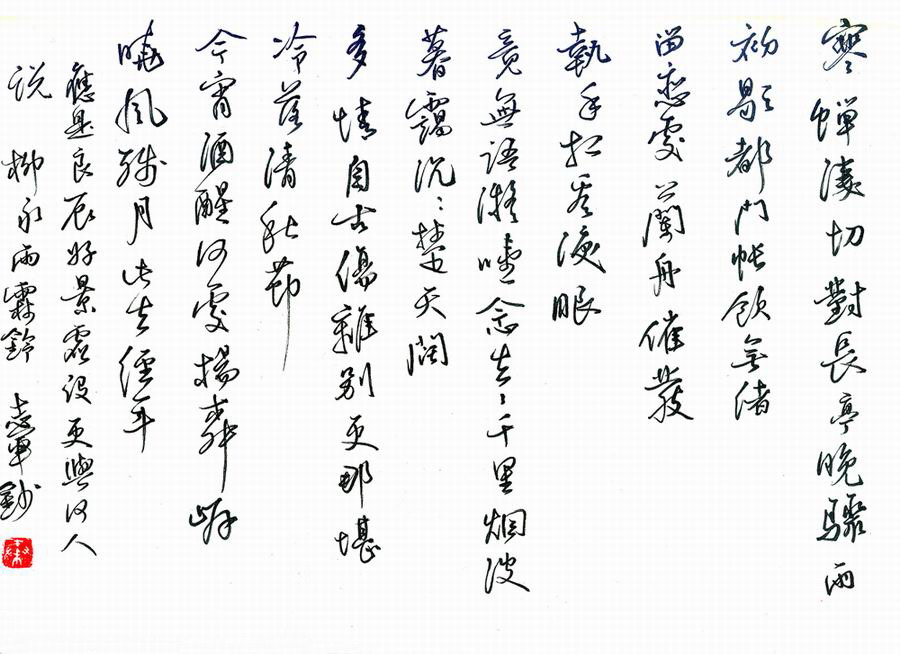 寒蟬淒切對長亭晚驟雨
初歇都門帳飲無緒
留戀處蘭舟催發
執手相看淚眼
竟無語凝噎念去々千里烟波
暮靄沉々楚天闊
多情自古傷離别更那堪
冷落清秋節
今宵酒醒何處楊柳岸
曉風殘月此去經年
應是良辰好景虛設更與何人
说 柳永雨霖鈴 志軍鈔